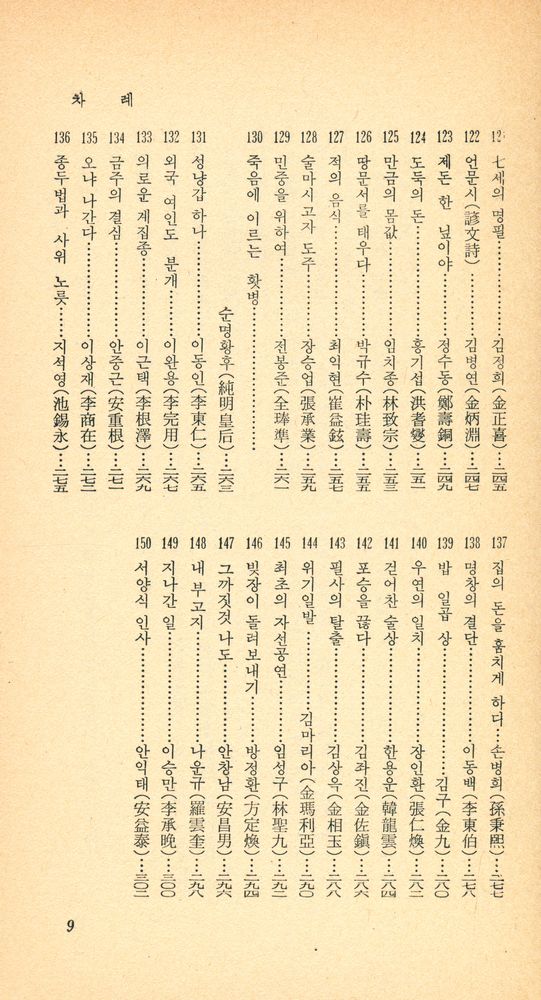 차 례
121 七세의 명필……………김정희(金正喜)…二四五
122 언문시(諺文詩)……………김병연(金炳淵)…二四七
123 제 돈 한 닢이야……………정수동(鄭壽銅)…二四九
124 도둑의 돈……………홍기섭(洪耆燮)…二五一
125 만금의 몸값……………임치종(林致宗)…二五三
126 땅문서를 태우다……………박규수(朴珪壽)…二五五
127 적의 음식……………최익현(崔益鉉)…二五七
128 술마시고자 도주……………장승업(張承業)…二五九
129 민중을 위하여……………전봉준(全琫準)…二六一
130 죽음에 이르는 홧병……………
순명황후(純明皇后)…二六三
131 성냥갑 하나……………이동인(李東仁)…二六五
132 외국 여인도 분개……………이완용(李完用)…二六七
133 의로운 계집종……………이근택(李根澤)…二六九
134 금주의 결심……………안중근(安重根)…二七一
135 오냐 나간다……………이상재(李商在)…二七三
136 종두법과 사위 노릇……지석영(池錫永)…二七五
137 집의 돈을 훔치게 하다…손병희(孫秉熙)…二七七
138 명창의 결단……………이동백(李東伯)…二七八
139 밥 일곱 상……………김구(金九)…二八〇
140 우연의 일치……………장인환(張仁煥)…二八二
141 걷어찬 술상……………한용운(韓龍雲)…二八四
142 포승을 끊다……………김좌진(金佐鎭)…二八六
143 필사의 탈출……………김상옥(金相玉)…二八八
144 위기일발……………김마리아(金瑪利亞)…二九〇
145 최초의 자선공연……………임성구(林聖九)…二九二
146 빚장이 돌려보내기……………방정환(方定煥)…二九四
147 그까짓것 나도……………안창남(安昌男)…二九六
148 내 부고지……………나운규(羅雲奎)…二九八
149 지나간 일……………이승만(李承晚)…三〇〇
150 서양식 인사……………안익태(安益泰)…三〇二
9